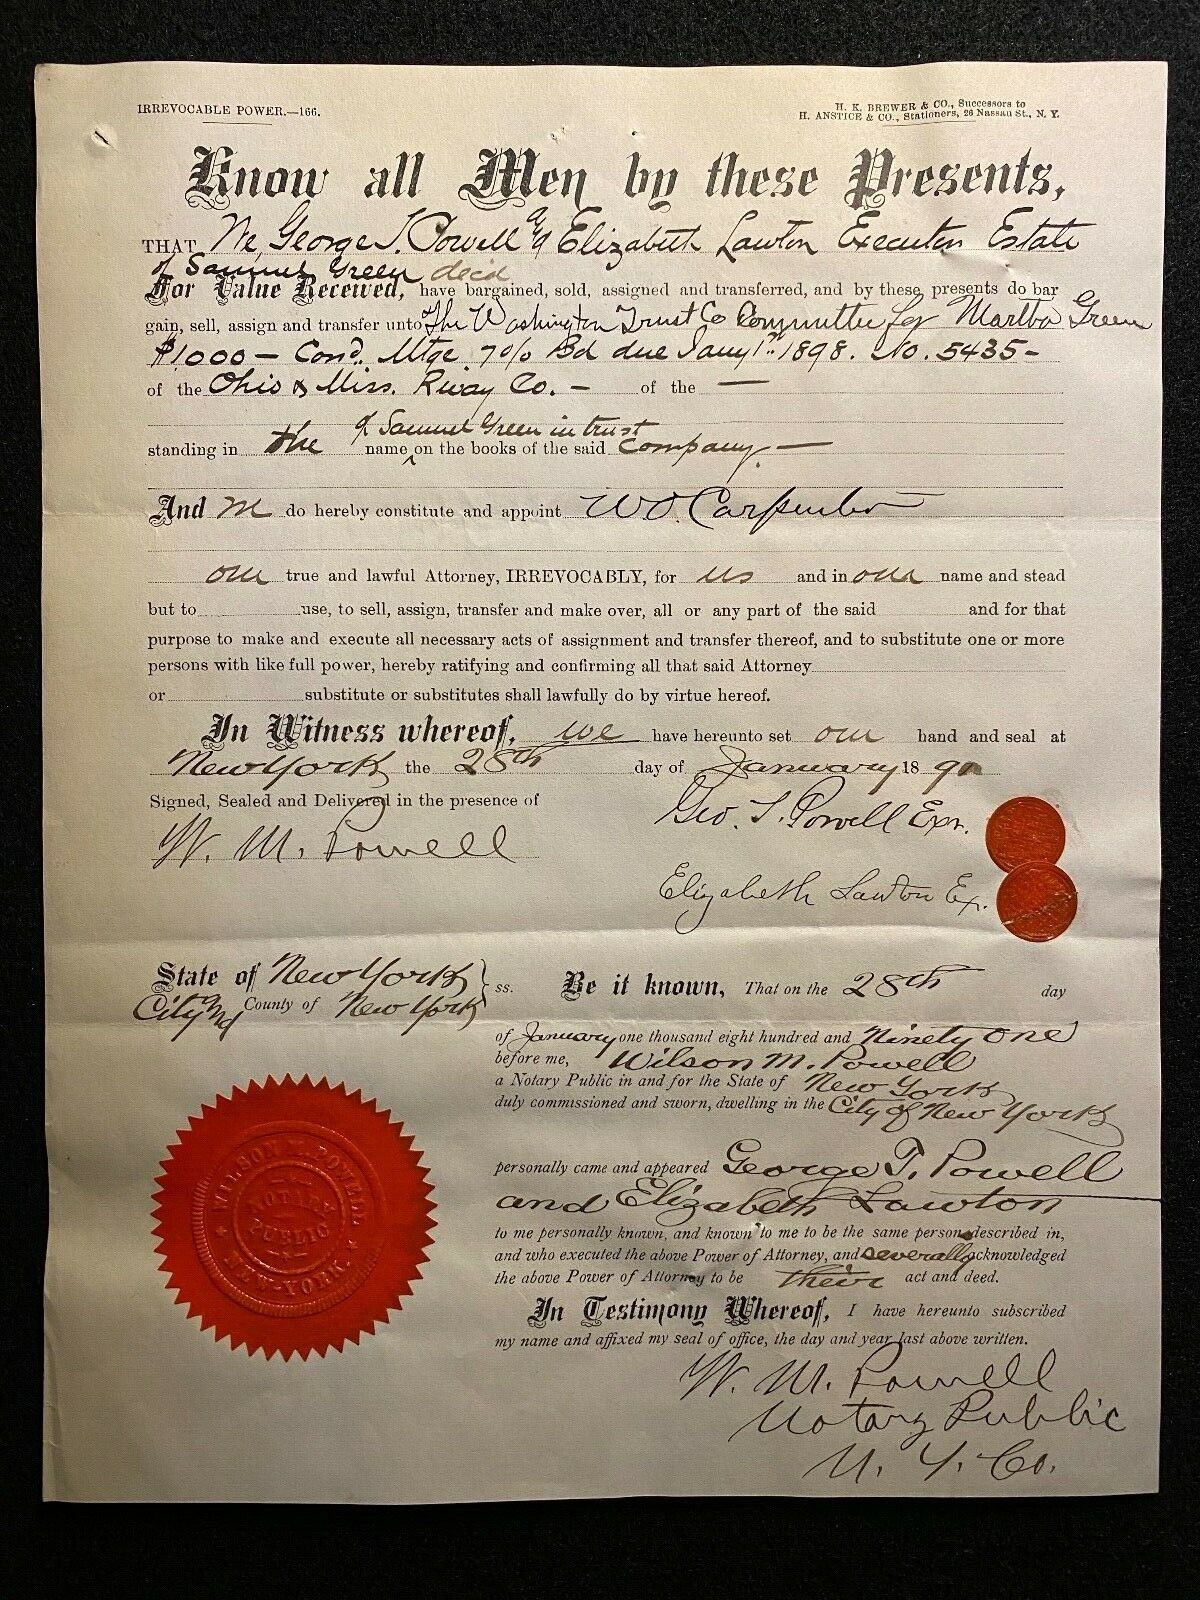 IRREVOCABLE POWER.—166.
H. K. BREWER & CO., Successors to
H. ANSTICE & CO., Stationers, 26 Nassau St., N. Y.
Know all Men by these Presents,
THAT We, George T. Powell & Elizabeth Lawton Executors Estate
of Samuel Green dec'd
For Value Received, have bargained, sold, assigned and transferred, and by these presents do bar
gain, sell, assign and transfer unto The Washington Trust Co Committee for Martha Green
$1,000 — Cons. Mtge 7% Bd due Jany 1st 1898. No. 5435 -
of the Ohio & Miss. Rway Co. - of the —
of Samuel Green in trust
standing in the name ^ on the books of the said Company. —
And we do hereby constitute and appoint W. O. Carpenter
our true and lawful Attorney, IRREVOCABLY, for us and in our name and stead
but to use, to sell, assign, transfer and make over, all or any part of the said and for that
purpose to make and execute all necessary acts of assignment and transfer thereof, and to substitute one or more
persons with like full power, hereby ratifying and confirming all that said Attorney
or substitute or substitutes shall lawfully do by virtue hereof.
In Witness whereof, we have hereunto set our hand and seal at
New York the 28th day of January 1891
Signed, Sealed and Delivered in the presence of
Geo. T. Powell Exr.
W. M. Powell
Elizabeth Lawton Ex.
State of New York } ss.
City and County of New York
Be it known, That on the 28th day
of January one thousand eight hundred and Ninety one
before me, Wilson M. Powell
a Notary Public in and for the State of New York
duly commissioned and sworn, dwelling in the City of New York
personally came and appeared George T. Powell
and Elizabeth Lawton
to me personally known, and known to me to be the same persons described in,
and who executed the above Power of Attorney, and severally acknowledged
the above Power of Attorney to be their act and deed.
In Testimony Whereof, I have hereunto subscribed
my name and affixed my seal of office, the day and year last above written.
W. M. Powell
Notary Public
N. Y. Co.
WILSON M. POWELL
NOTARY
PUBLIC
NEW-YORK.